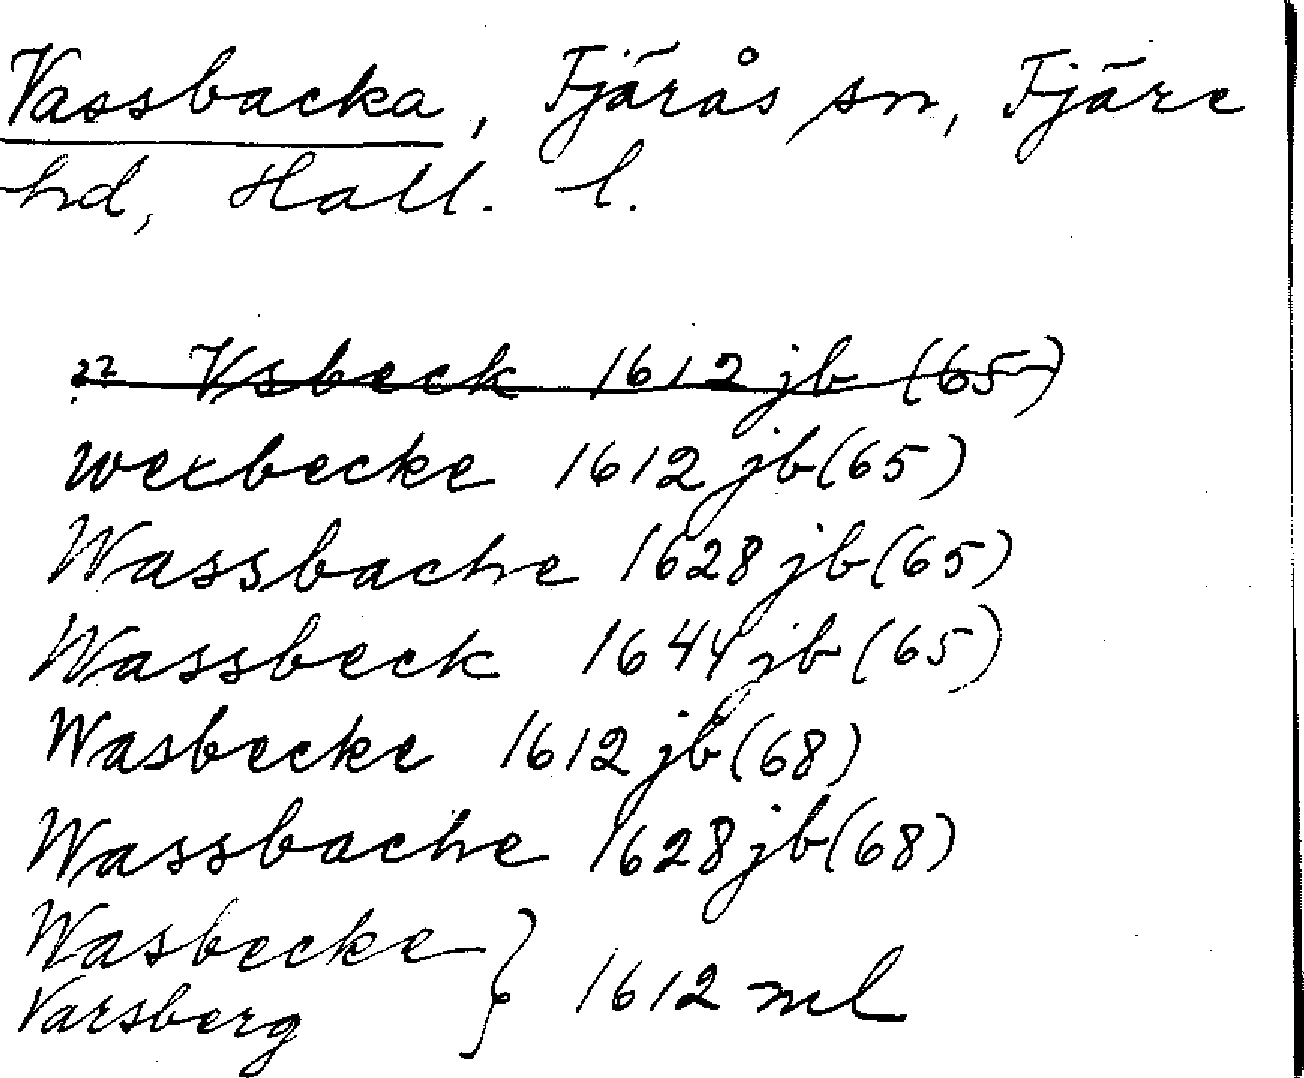 Vassbacka, Fjärås sn, Fjäre
hd, Hall. l.
?? Vsbeck 1612 jb (65)
Wexbecke 1612 jb (65)
Wassbache 1628 jb (65)
Wassbeck 1644 jb (65)
Wasbecke 1612 jb (68)
Wassbache 1628 jb (68)
Wasbecke
Varsberg } 1612 ml